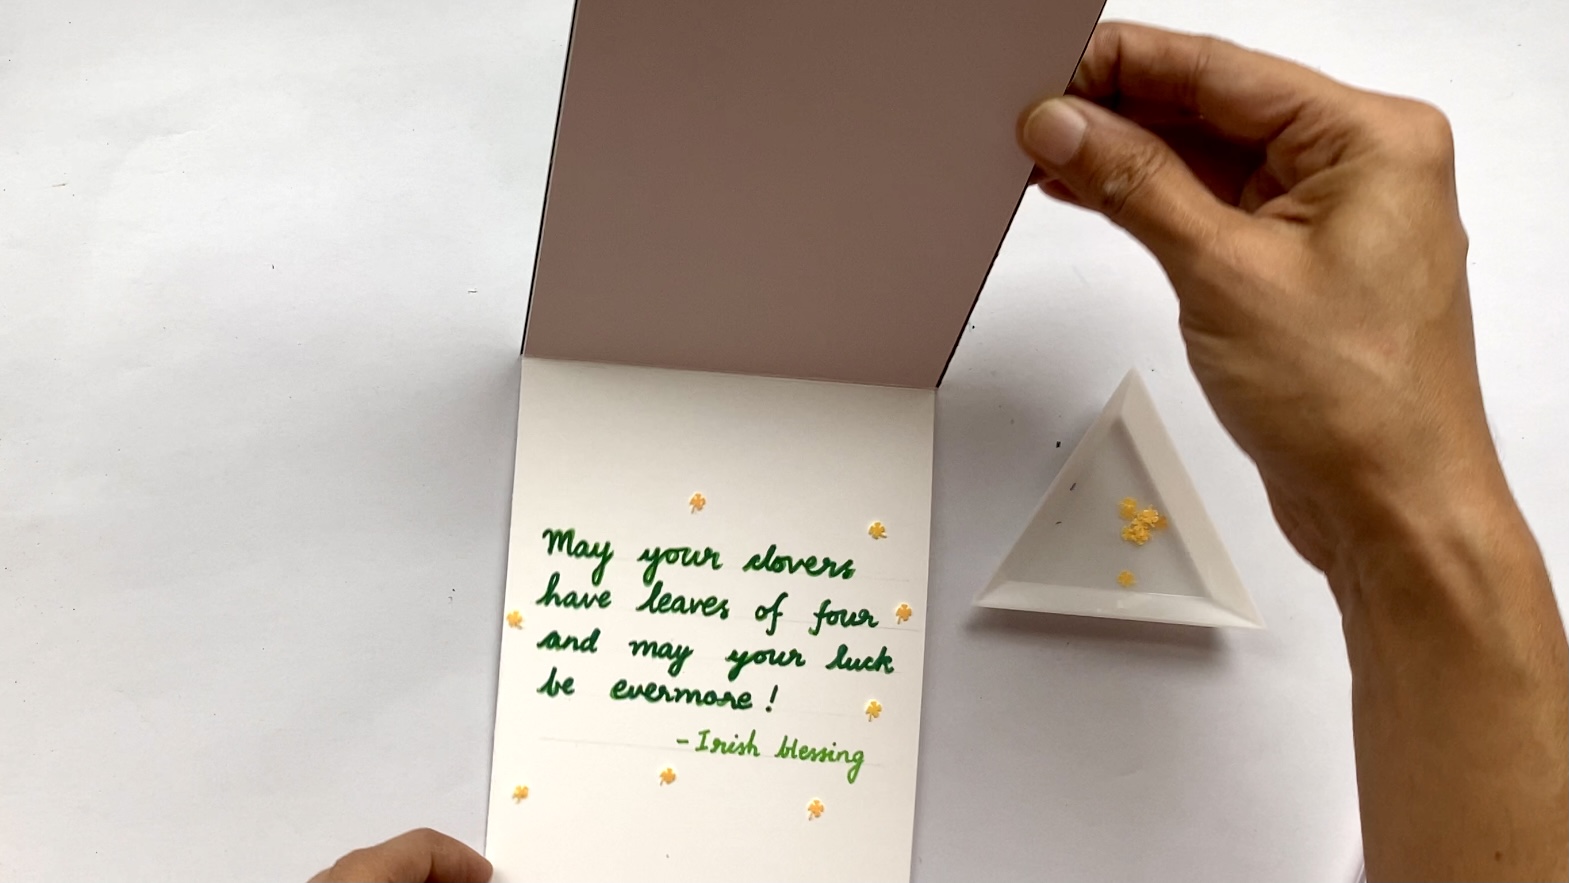 May your clovers
have leaves of four
and may your luck
be evermore!
- Irish blessing